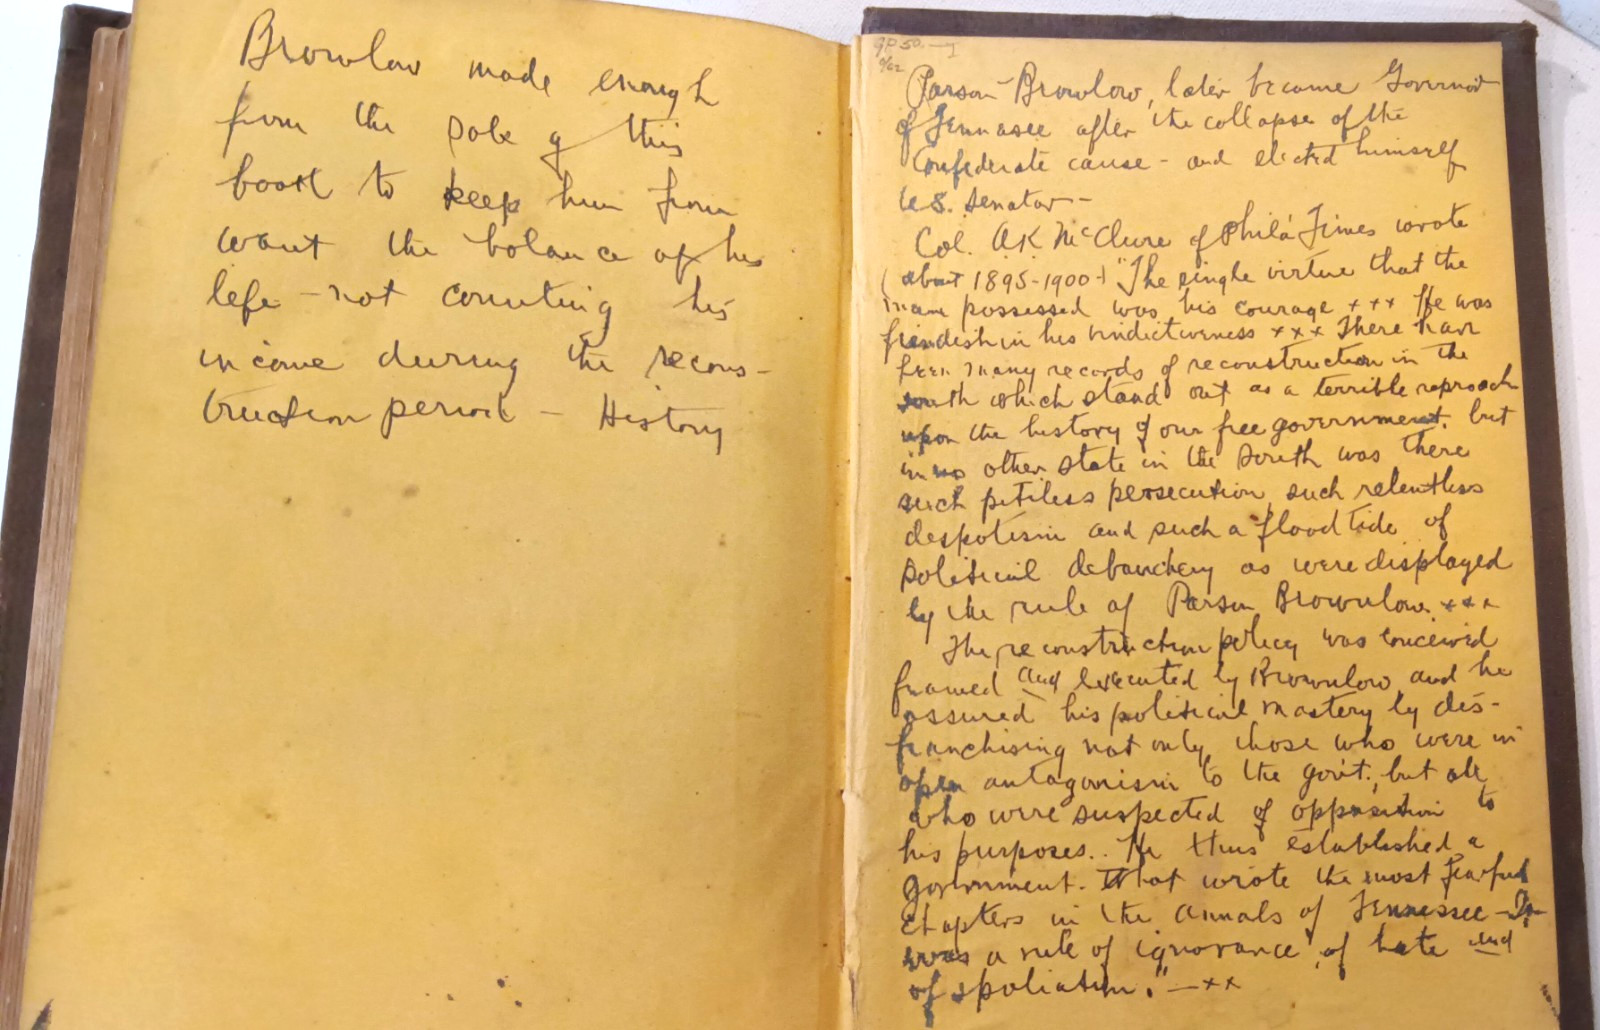 Browlow made enough
from the sale of this
book to keep him from
want the balance of his
life - not counting his
income during the recons-
truction period - History
Parson Browlow, later became Governor
of Tennasee after the collapse of the
Confederate cause - and elected himself
U.S. Senator -
Col. A.K. McClure of Phila Times wrote
(about 1895-1900-) "The single virtue that the
man possessed was his courage x x x He was
fiendish in his vindictivness x x x There have
been many records of reconstruction in the
south which stand out as a terrible reproach
upon the history of our free government. but
in no other state in the South was there
such pitiless persecution, such relentless
despotism and such a flood tide of
political debauchery as were displayed
by the rule of Parson Brownlow. x x x
The reconstruction policy was conceived
framed and executed by Brownlow and he
assured his political mastery by dis-
franchising not only those who were in
open antagonism to the gov't. but all
who were suspected of opposition to
his purposes. He thus established a
government. that wrote the most fearful
chapters in the annals of Tennessee - It
was a rule of ignorance, of hate and
of spoliation." - x x